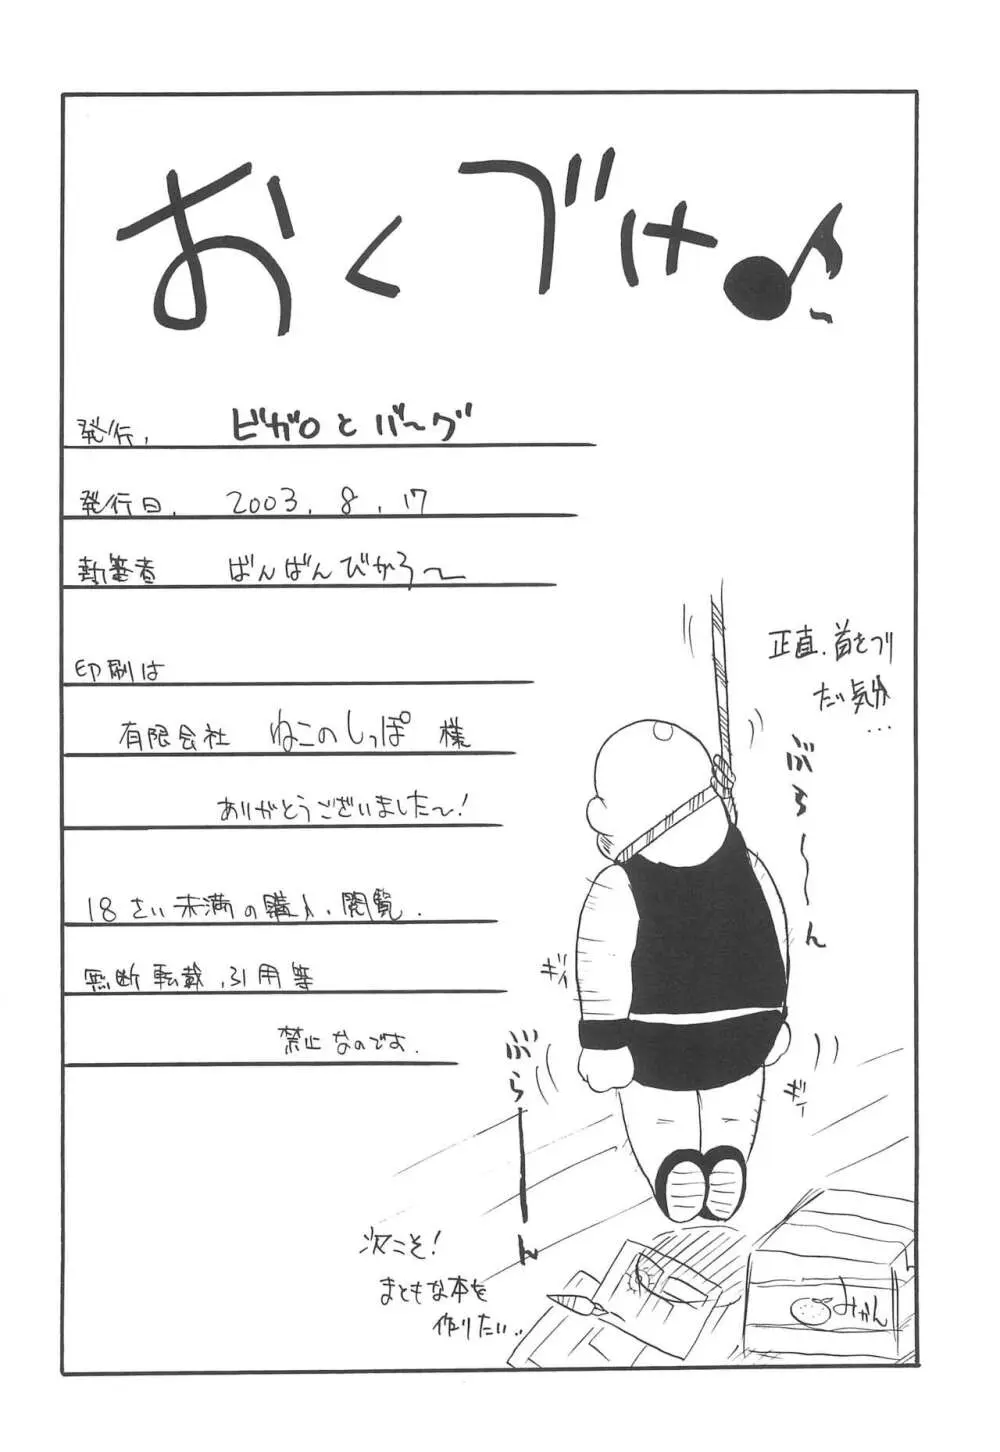 おくづけ♪
発行、 ビガロとバーグ
発行日、 2003.8.17
執筆者 ばんばんびがろ〜
印刷は
有限会社 ねこのしっぽ 様
ありがとうございました〜!
18さい未満の購入、閲覧、
無断転載、引用等
禁止なのです.
正直、首をつり
たい気分
...
ぶら〜〜ん
ギィ
ぶらーーん
ギー
次こそ!
まともな本を
作りたい..
みかん